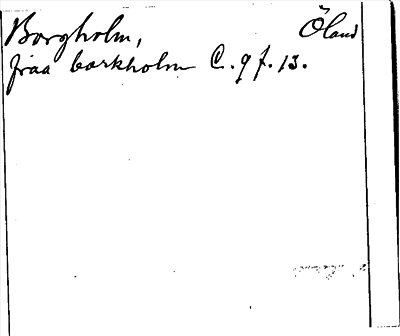 Borgholm, Öland
fraa barkholm C. 9 f. 13.